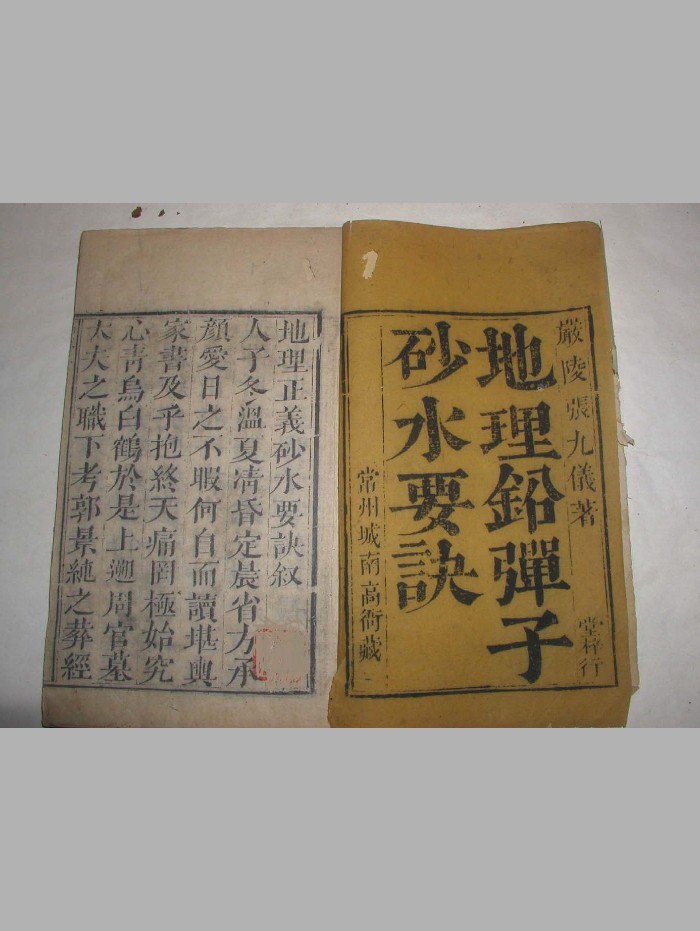 嚴陵張九儀著
堂梓行
地理鉛彈子
砂水要訣
常州城南高衙藏
地理正義砂水要訣叙
人子冬溫夏凊昏定晨省方承
顔愛日之不暇何自而讀堪輿
家書及乎抱終天痛罔極始究
心靑烏白鶴於是上遡周官墓
大夫之職下考郭景純之葬經